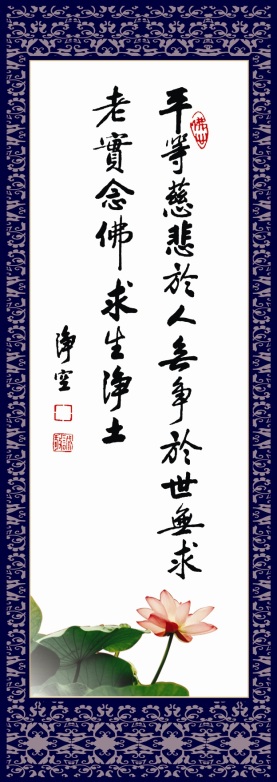 平等慈悲於人無争於世無求
老實念佛求生淨土
淨空